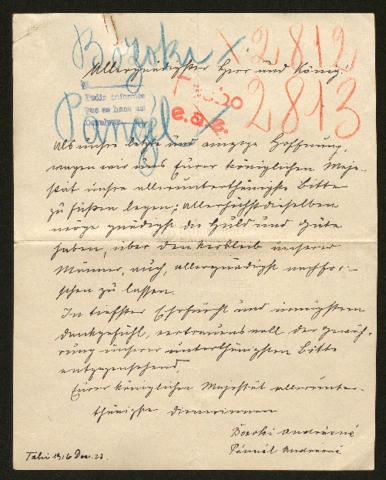 Bozoki X 2812
Allergnädigster Herr und König!
Pedir informes
que se haga en
e.a.e.
Páncél X 2813
Als unsre letzte und einzige Hoffnung,
wagen wir uns Eurer königlichen Maje-
stät unsre alleruntertänigste Bitte
zu Füßen legen; allerhöchstdieselben
möge gnädigst die Huld und Güte
haben, über den Verbleib unserer
Männer, auch, allergnädigst nachfor-
schen zu lassen.
In tiefster Ehrfurcht und innigstem
Dankgefühl, vertrauensvoll der Gewäh-
rung unserer unterthänigsten Bitte
entgegensehend,
Eurer königlichen Majestät allerunter-
thänigste Dienerinnen
Bozoki Andrásné
Páncél Andrásné
1916 Dez. 23.